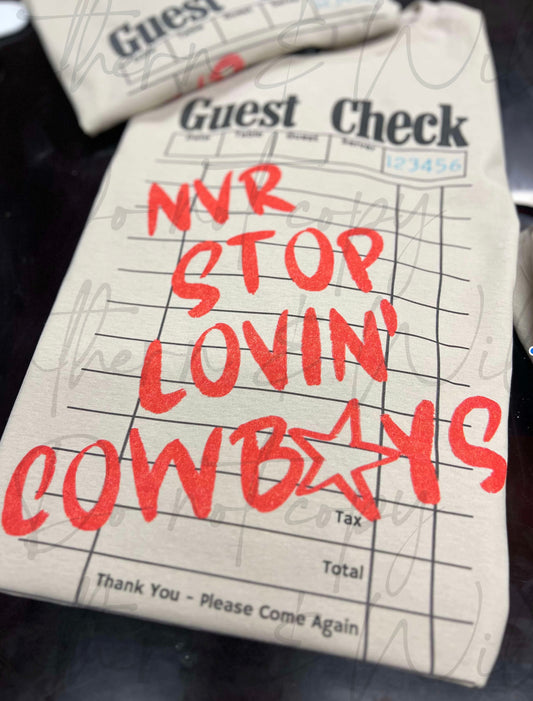 Guest
Guest Check
Date Table Guest Server
123456
NVR
STOP
LOVIN'
COWB☆YS
Tax
Total
Thank You - Please Come Again
Do not copy
Do not copy